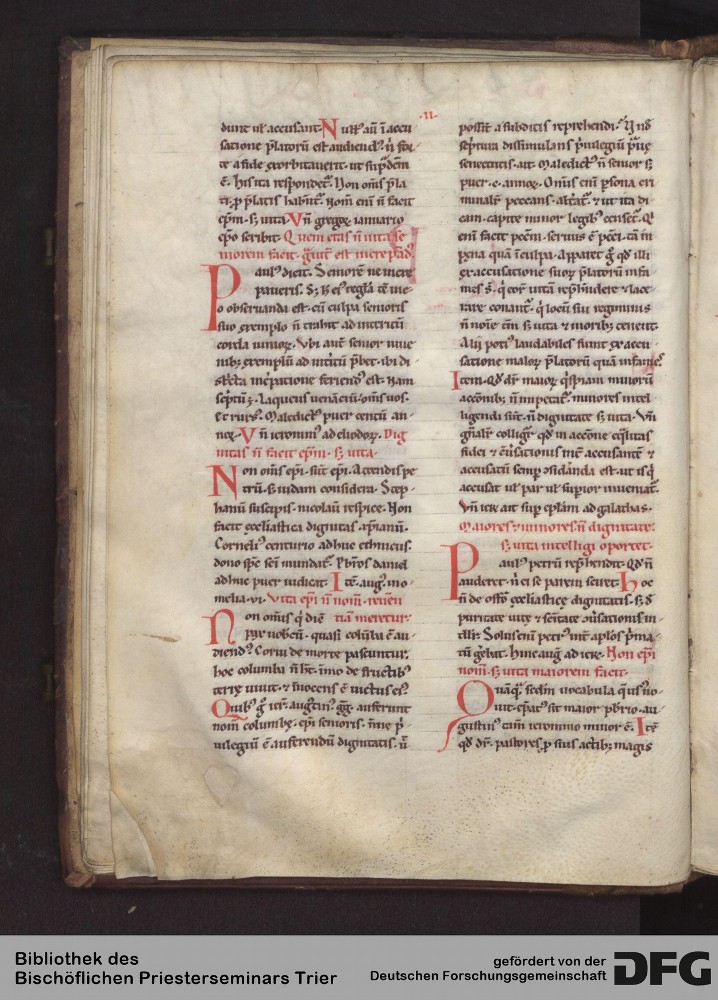 .II.
dunt uł accusant. Nullꝰ aũ ĩ accu
satione p̃latorũ est audiendꝰ. ñ for
te a fide exorbitauerit. ut sup̃ dẽm
ẽ. His ita respondet᷑. Non om̃s p̃la
ti ꝓ p̃latis habñt᷑. Nom̃ eni ñ facit
ep̃m. sꝫ uita. Vñ gregoꝝ ianuario
ep̃o scribit. Quem etas ñ uita se
niorem facit.
Paulꝰ dicit. Seniorẽ ne incre
paueris. Sꝫ ĩ eiꝰ regła tẽ ue
o obseruanda est. cũ culpa senioris
suo exemplo ñ trahit ad interitũ
corda iunioꝝ. Vbi aut̃ senior iuue
nibꝫ exemplũ ad int̃itũ p̃bet. ibi di
stcta incp̃atione feriendꝰ est. Nam
sc̃ptũ ꝫ. Laqueus uenãciũ. om̃s uos.
Et rursꝰ. Maledictꝰ puer centũ an
noꝝ. Vñ ieronimꝰ ad eliodoꝝ. Dig
nitas ñ facit ep̃m. sꝫ uita.
Non om̃s ep̃i. sũt ep̃i. Attendis pe
trũ. sꝫ iudam considera. Step
hanũ suscipis. nicolaũ respice. Non
facit ęccliastica dignitas. xp̃ianũ.
Corneliꝰ centurio adhuc ethnicus.
dono sp̃c sc̃i mundat᷑. P̃bros daniel
adhuc puer iudicat. Itẽ. augꝰ. ino
melia. VI. Vita ep̃i ñ nom̃. reuen
Non om̃is q̇ dic̃ tiam meretur.
pax uobcũ. quasi colũba ẽ au
diendꝰ. Corui de morte pascuntur.
hoc columba ñ h̃t. imo de fructibꝰ
terrę uiuit. ⁊ innocens ẽ uictus eiꝰ.
Quibꝰ g̊ iter̃. augustinꝰ. gg̃. auferunt
nom̃ columbę. ep̃i senioris. iure p̃
uilegiũ ẽ auferendũ dignitatis. ñ
possit a subditis reprehendi. Qi nõ
sc̃ptura dissimulans p̃uilegiũ p̃uę
senectutis. ait. Maledictꝰ ñ senior sꝫ
puer. c. annoꝝ. Om̃is eni ꝑsona cri
minalit̃ peccans. alt̃at᷑. ⁊ ut ita di
cam. capite minor legibꝰ censet᷑. Qi
eni facit pcc̃m. seruus ẽ pcc̃i. tã in
pęna quã ĩ culpa. Apparet g̊ qd̃ illi
ex accusatione suoꝝ p̃latorũ infa
mes s̃. q̇ eoꝝ uitãm rep̃hẽdere ⁊ lace
rare conant᷑. q̇ locũ sui regiminis
ñ noĩe tm̃ sꝫ uita ⁊ moribꝰ tenent.
Alij potiꝰ laudabiles fiunt ex accu
satione maloꝝ p̃latorũ quã infames.
Item. Qd̃ dr̃ maioꝝ q̇spiam minorũ
acc̃onibꝫ ñ impetat᷑. minores intel
ligendi sũt. ñ dignitate sꝫ uita. Vñ
gñalit̃ colligit᷑ qd̃ in acc̃one eq̃litas
fidei ⁊ cõuersationis int̃ accusantẽ ⁊
accusatũ semꝑ ostẽdanda est. ut is q̇
accusat uł par uł supior inueniat᷑.
Vñ iero. ait sup̃ ep̃lam ad galathas.
Maiores ⁊ minores. ñ dignitate.
sꝫ uita intelligi oportet.
Paulꝰ petrũ rep̃hendit. Qd̃ ñ
auderet. ñ ei se parem sciret. Hoc
ñ de off̃o ęccliasticę dignitatis. sꝫ d
puritate uitę ⁊ sc̃itate cõuersationis in
tell᷑r. Solus eni petrꝰ int̃ apl̃os p̃ma
tũ gerebat. Hinc augꝰ. ad iero. Non ep̃i
nom̃. sꝫ uita maiorem facit.
Quãqꝫ sc̃dm uocabula q̃ usꝰ no
uit. ep̃atꝰ sit maior p̃bit̃io. au
gustinꝰ tam̃ ieronimo minor ẽ. Itẽ
qd̃ dr̃. pastores. ꝓ suis actibꝫ magis
Bibliothek des
Bischöflichen Priesterseminars Trier
gefördert von der
Deutschen Forschungsgemeinschaft
DFG